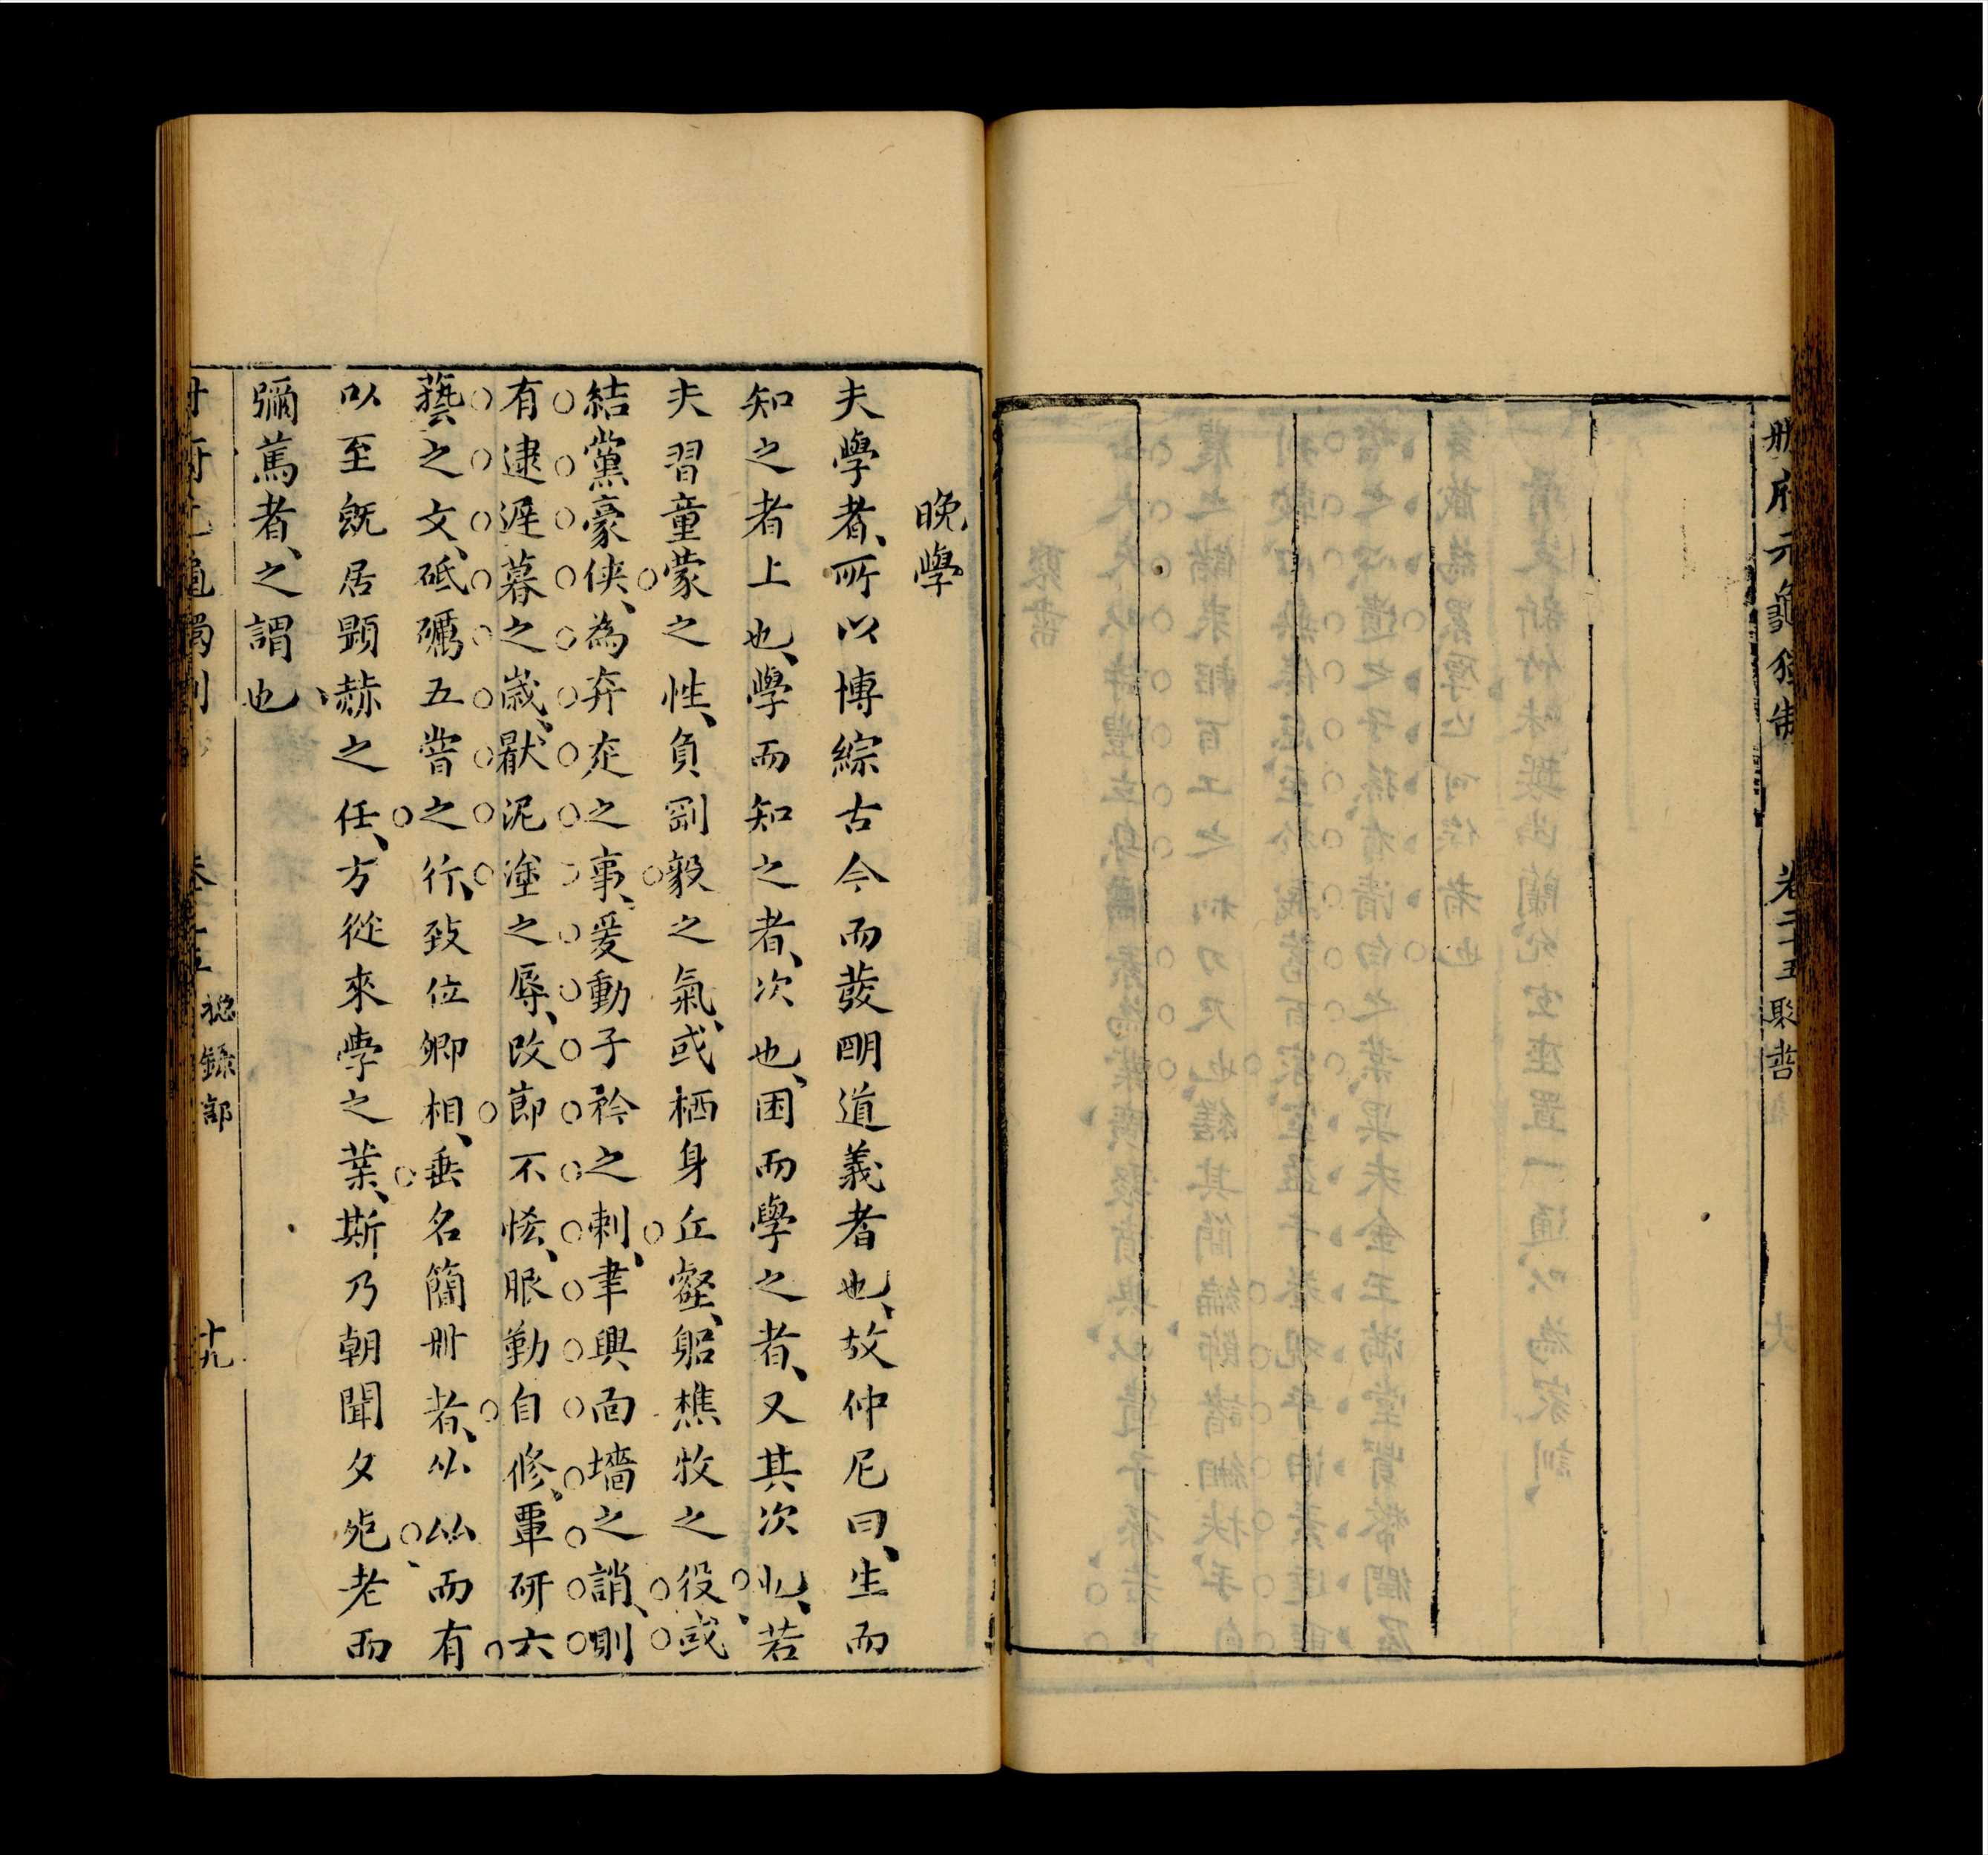 冊府元龜獨制 卷二十五 聚書
晚學
夫學者、所以博綜古今而發明道義者也、故仲尼曰、生而
知之者上也、學而知之者、次也、困而學之者、又其次也、若
夫習童蒙之性、負剛毅之氣、或栖身丘壑、躬樵牧之役、或
結黨豪俠、為弃走之事、爰動子衿之刺、聿興面墻之誚、則
有逮遲暮之歲、厭泥塗之辱、改節不恡、服勤自修、覃研六
藝之文、砥礪五嘗之行、致位卿相、垂名簡冊者、從從而有
以至旣居顯赫之任、方從來學之業、斯乃朝聞夕死老而
彌篤者、之謂也
總錄部 十九